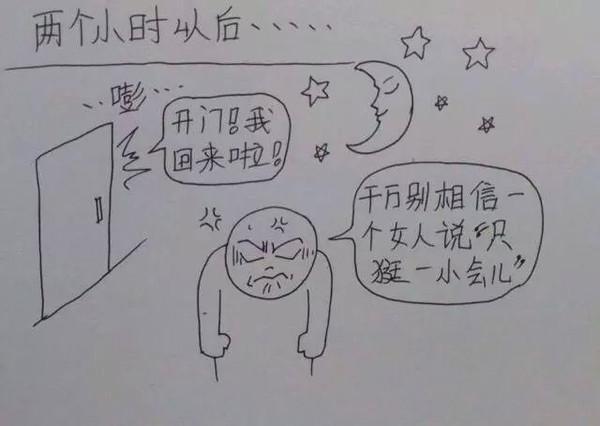 两个小时以后......
..嘭...
开门!我
回来啦!
千万别相信一
个女人说“只
逛一小会儿”